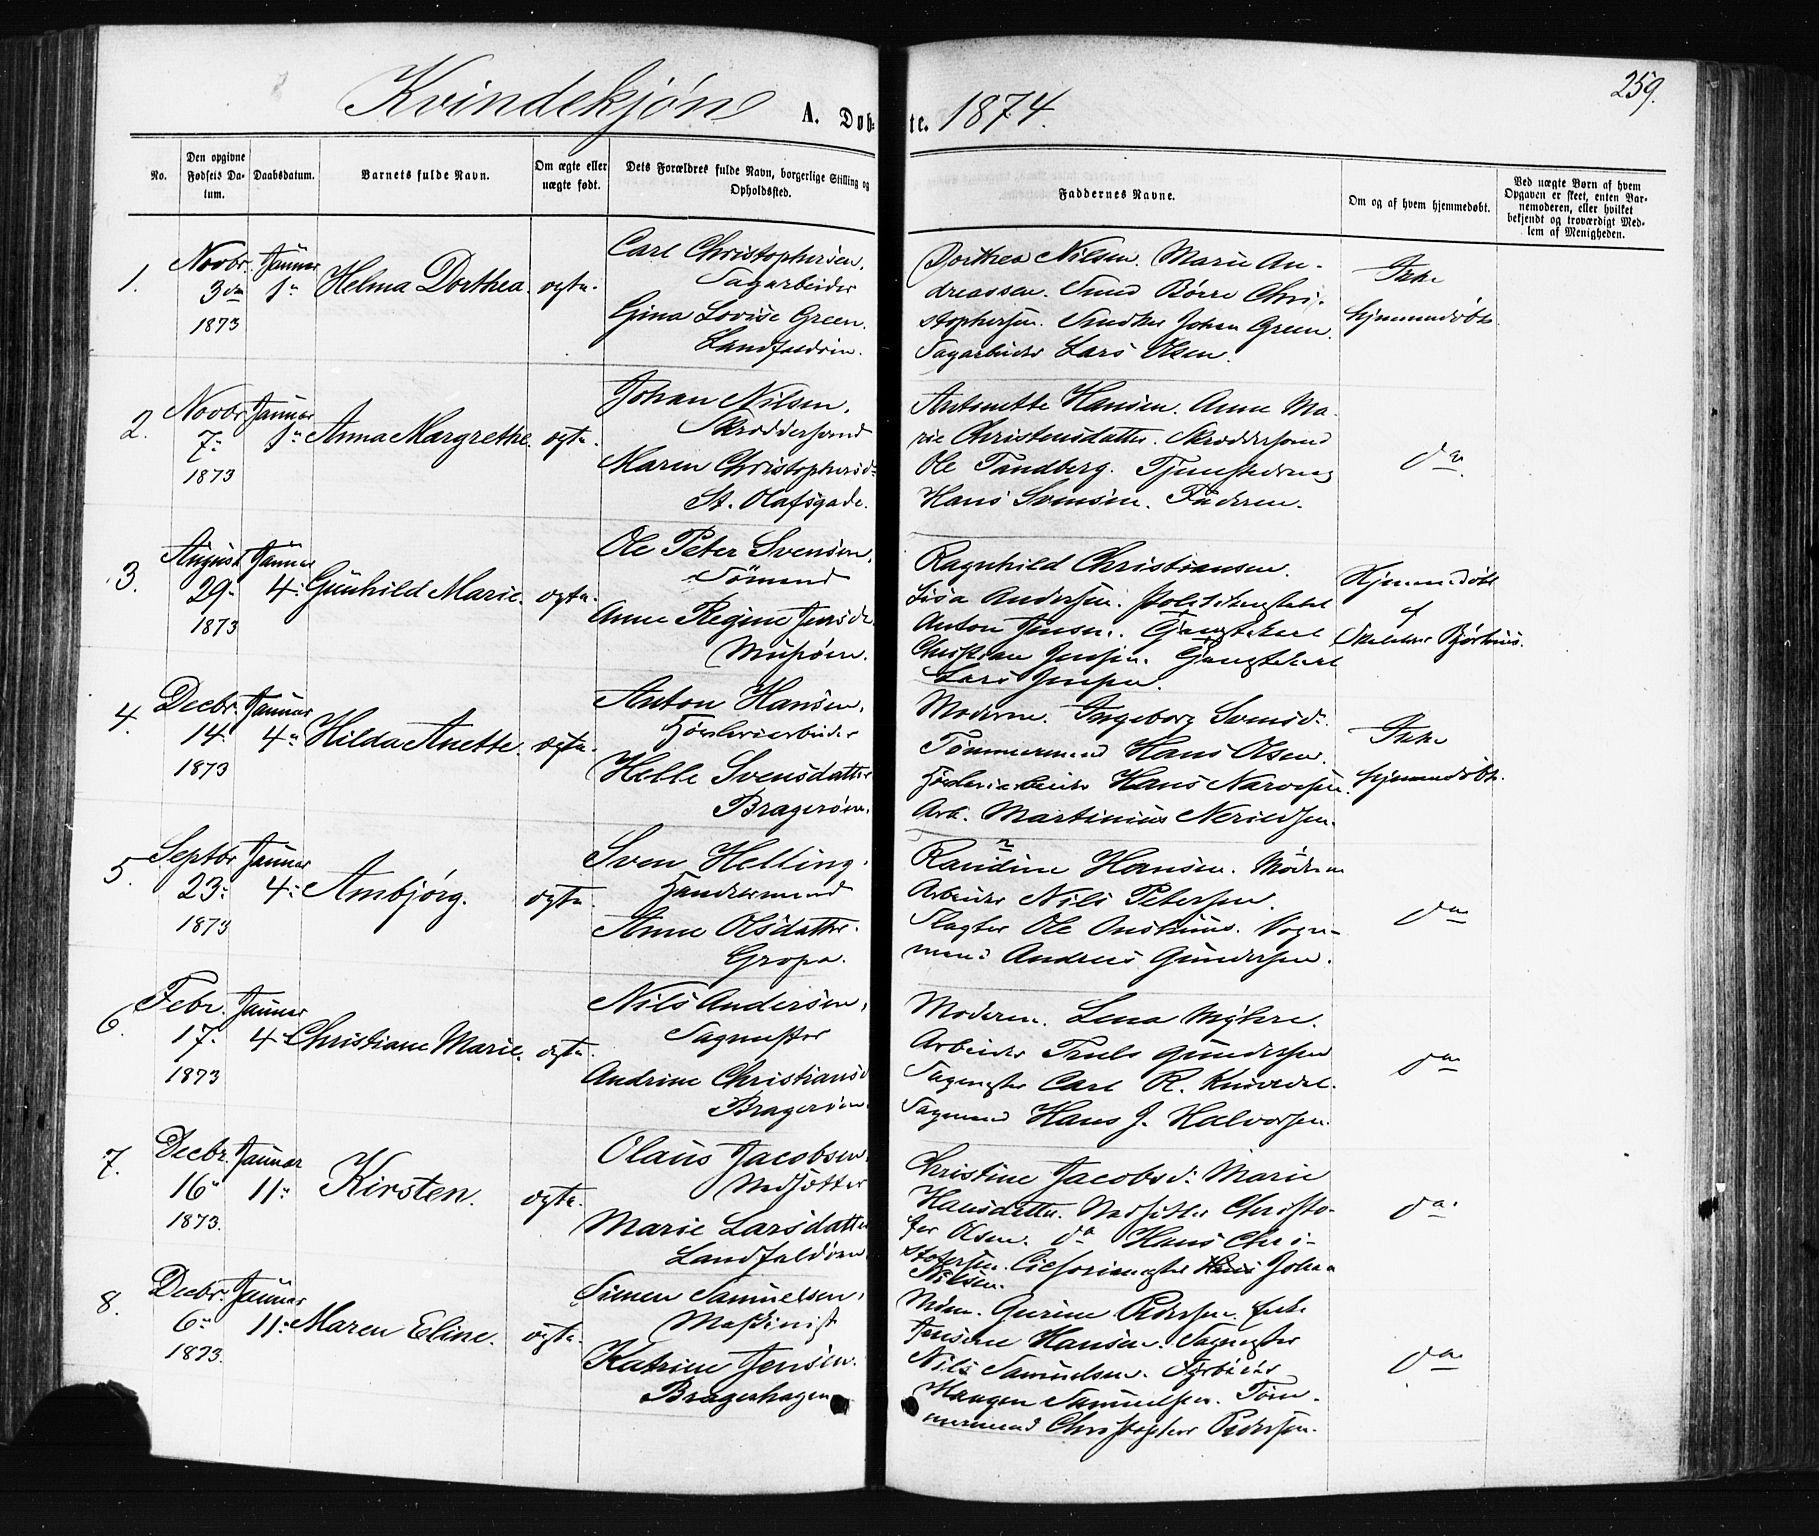 259.
Kvindekjøn A. Døbte. 1874.
No.
Den opgivne Fødsels Datum.
Daabsdatum.
Barnets fulde Navn.
Om ægte eller uægte født.
Dets Forældres fulde Navn, borgerlige Stilling og Opholdssted.
Faddernes Navne.
Om og af hvem hjemmedøbt.
Ved uægte Børn af hvem Opgaven er skeet, enten Barnemoderen, eller hvilket bekjendt og troværdigt Medlem af Menigheden.
1.
Novbr. 3die 1873
Januar 1ste
Helma Dorthea.
ægte.
Carl Christophersen.
Sagarbeider
Gina Lovise Green.
Landfaldøen.
Dorthea Nilsen. Marie An-
dreassen. Smed Børre Chri-
stophersen. Snedker Johan Green.
Sagarbeider Lars Olsen.
Ikke
hjemmedøbt.
2.
Novbr. 7. 1873
Januar 1
Anna Margrethe.
ægte.
Johan Nilsen.
Skræddersvend
Maren Christophersd.
St. Olafsgade.
Antonette Hansen. Anne Ma-
rie Christensdatter. Skræddersvend
Ole Tandberg. Tjenestedreng
Hans Svensen. Faderen.
do
3.
August 29. 1873
Januar 4.
Gunhild Marie.
ægte.
Ole Peter Svensen.
Sømand
Anne Regine Jensd.
Ragnhild Christiansen.
Lisa Andersen. Politikonstabel
Anton Jensen.
Christian Jensen.
Lars Jensen.
Hjemmedøbt
af
4.
Decbr. 14. 1873
Januar 4
Hilda Anette.
ægte.
Anton Hansen.
Helle Svensdatter
Bragerøen.
Moderen. Ingeborg Svensd.
Tømmermand Hans Olsen.
Hans Narvesen.
Arb. Martinius
Ikke
hjemmedøbt.
5.
Septbr. 23. 1873
Januar 4.
Ambjørg.
ægte.
Sven Helling.
Handelsmand
Anne Olsdatter.
Gropa.
Randine Hansen. Moderen
Arbeider Nils Petersen.
Slagter Ole
Andreas Gundersen.
do
6.
Febr. 17. 1873
Januar 4
Christiane Marie.
ægte.
Nils Andersen,
Sagmester
Andrine Christiansd.
Bragerøen.
Moderen. Lena Myhre.
Arbeider Truls Gundersen
Sagmester Carl R.
Sagmand Hans J. Halvorsen.
do
7.
Decbr. 16 1873.
Januar 11
Kirsten.
ægte.
Olaus Jacobsen.
Marie Larsdatter
Landfaldøen
Christine Jacobsd. Marie
Hansdatter. Christo-
fer Olsen. do Hans Chri-
stofersen. Johan
Nilsen.
do
8.
Decbr. 6 1873.
Januar 11
Maren Eline.
ægte.
Simen Samuelsen,
Maskinist
Katrine Jensen.
Bragerhagen
Gurine Pedersen. Enke
Hansen. Sagmester
Nils Samuelsen.
Samuelsen. Tøm-
mermand Christopher Pedersen.
do